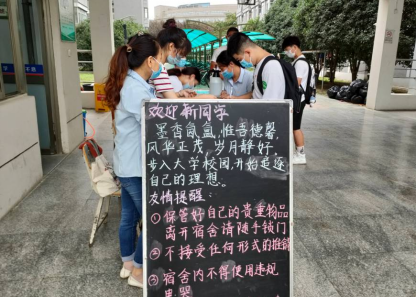 欢迎新同学
墨香氤氲,惟吾德馨
风华正茂,岁月静好,
步入大学校园,开始追逐
自己的理想。
友情提醒:
①保管好自己的贵重物品
离开宿舍请随手锁门
②不接受任何形式的推销
③宿舍内不得使用违规
电器